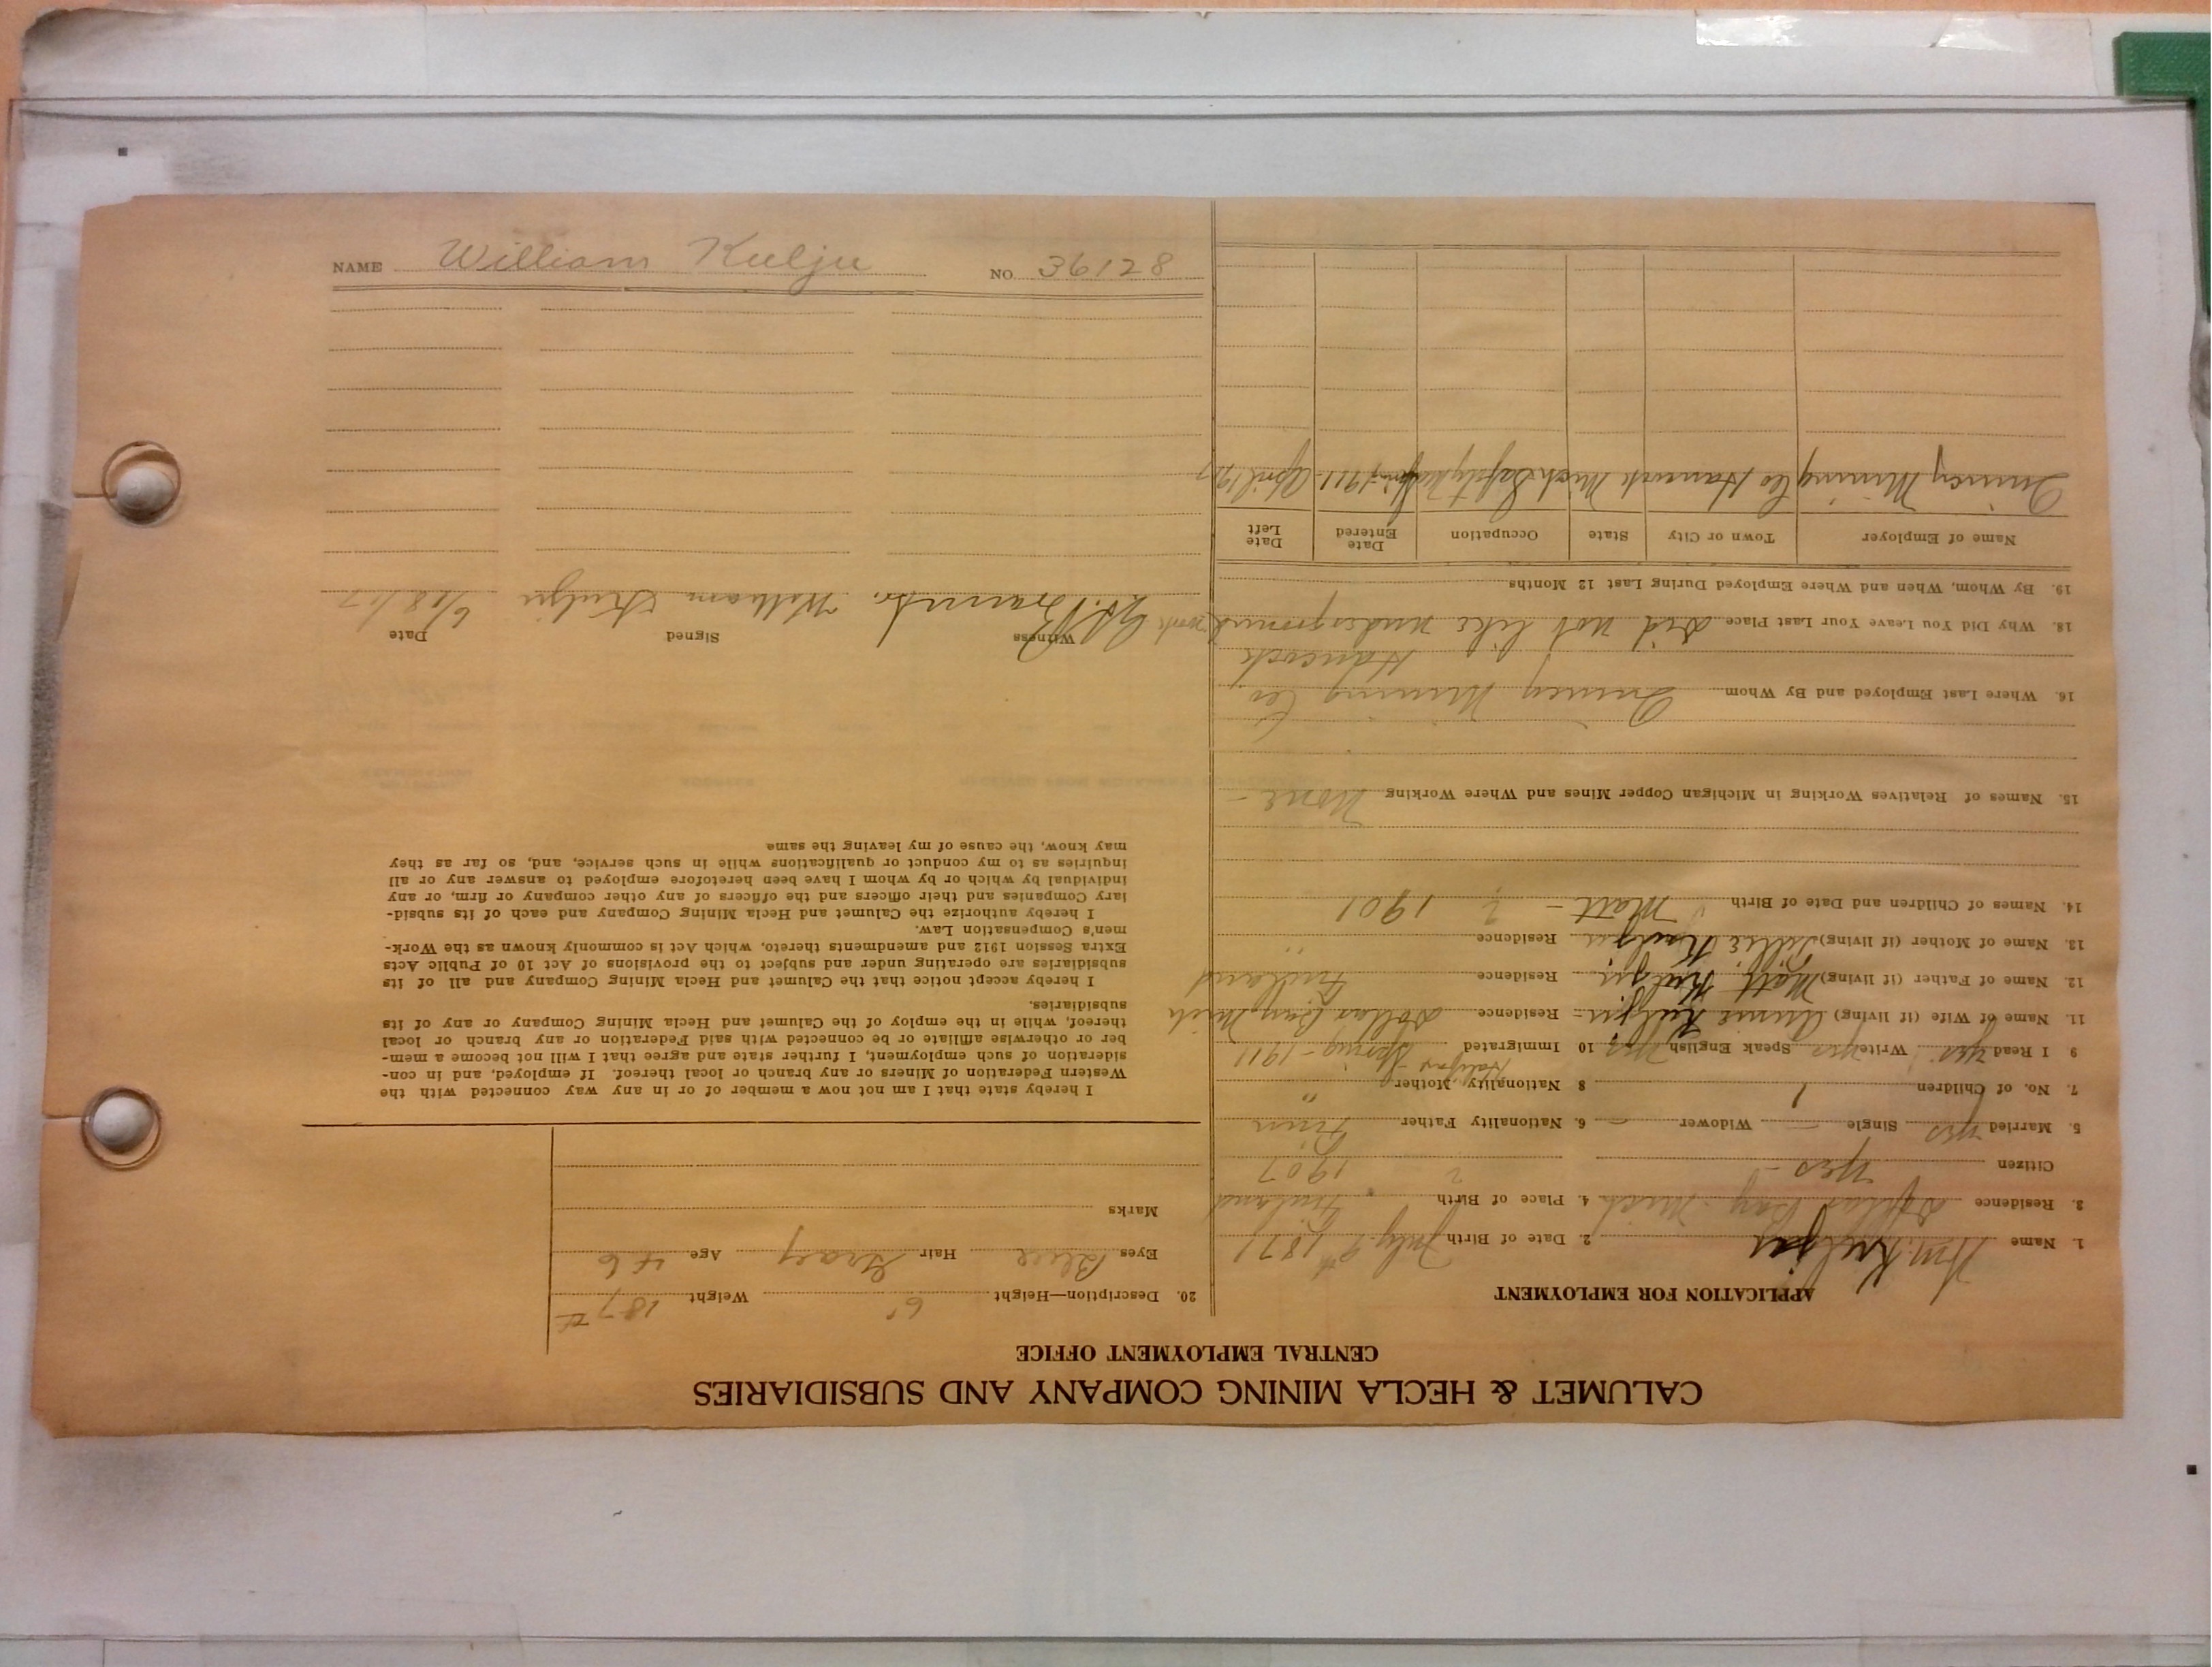 CALUMET & HECLA MINING COMPANY AND SUBSIDIARIES
CENTRAL EMPLOYMENT OFFICE
APPLICATION FOR EMPLOYMENT
1. Name Wm. Kuljas 2. Date of Birth July 9th 1871
3. Residence Dollar Bay Mich 4. Place of Birth Finland
Citizen yes - 2 1907
5. Married yes Single — Widower — 6. Nationality Father Finn
7. No. of Children 1 8 Nationality Mother "
9 I Read yes Write yes Speak English yes 10 Immigrated Spring - 1911
11. Name of Wife (if living) Annie Kulju Residence Dollar Bay, Mich
12. Name of Father (if living) Matt Kulju Residence Finland
13. Name of Mother (if living) Kulju Residence "
14. Names of Children and Date of Birth Matt — 2 1901
15. Names of Relatives Working in Michigan Copper Mines and Where Working None -
16. Where Last Employed and By Whom Quincy Mining Co
Hancock
18. Why Did You Leave Your Last Place Did not like underground work
19. By Whom, When and Where Employed During Last 12 Months
Name of Employer Town or City State Occupation Date Entered Date Left
Quincy Mining Co Hancock Mich Safety 1911 April 1917
20. Description—Height 6' Weight 187 #
Eyes Blue Hair Gray Age 46
Marks
I hereby state that I am not now a member of or in any way connected with the
Western Federation of Miners or any branch or local thereof. If employed, and in con-
sideration of such employment, I further state and agree that I will not become a mem-
ber or otherwise affiliate or be connected with said Federation or any branch or local
thereof, while in the employ of the Calumet and Hecla Mining Company or any of its
subsidiaries.
I hereby accept notice that the Calumet and Hecla Mining Company and all of its
subsidiaries are operating under and subject to the provisions of Act 10 of Public Acts
Extra Session 1912 and amendments thereto, which Act is commonly known as the Work-
men's Compensation Law.
I hereby authorize the Calumet and Hecla Mining Company and each of its subsid-
iary Companies and their officers and the officers of any other company or firm, or any
individual by which or by whom I have been heretofore employed to answer any or all
inquiries as to my conduct or qualifications while in such service, and, so far as they
may know, the cause of my leaving the same
Witness Signed Date
William Kulju 6/18/17
NAME William Kulju NO. 36128